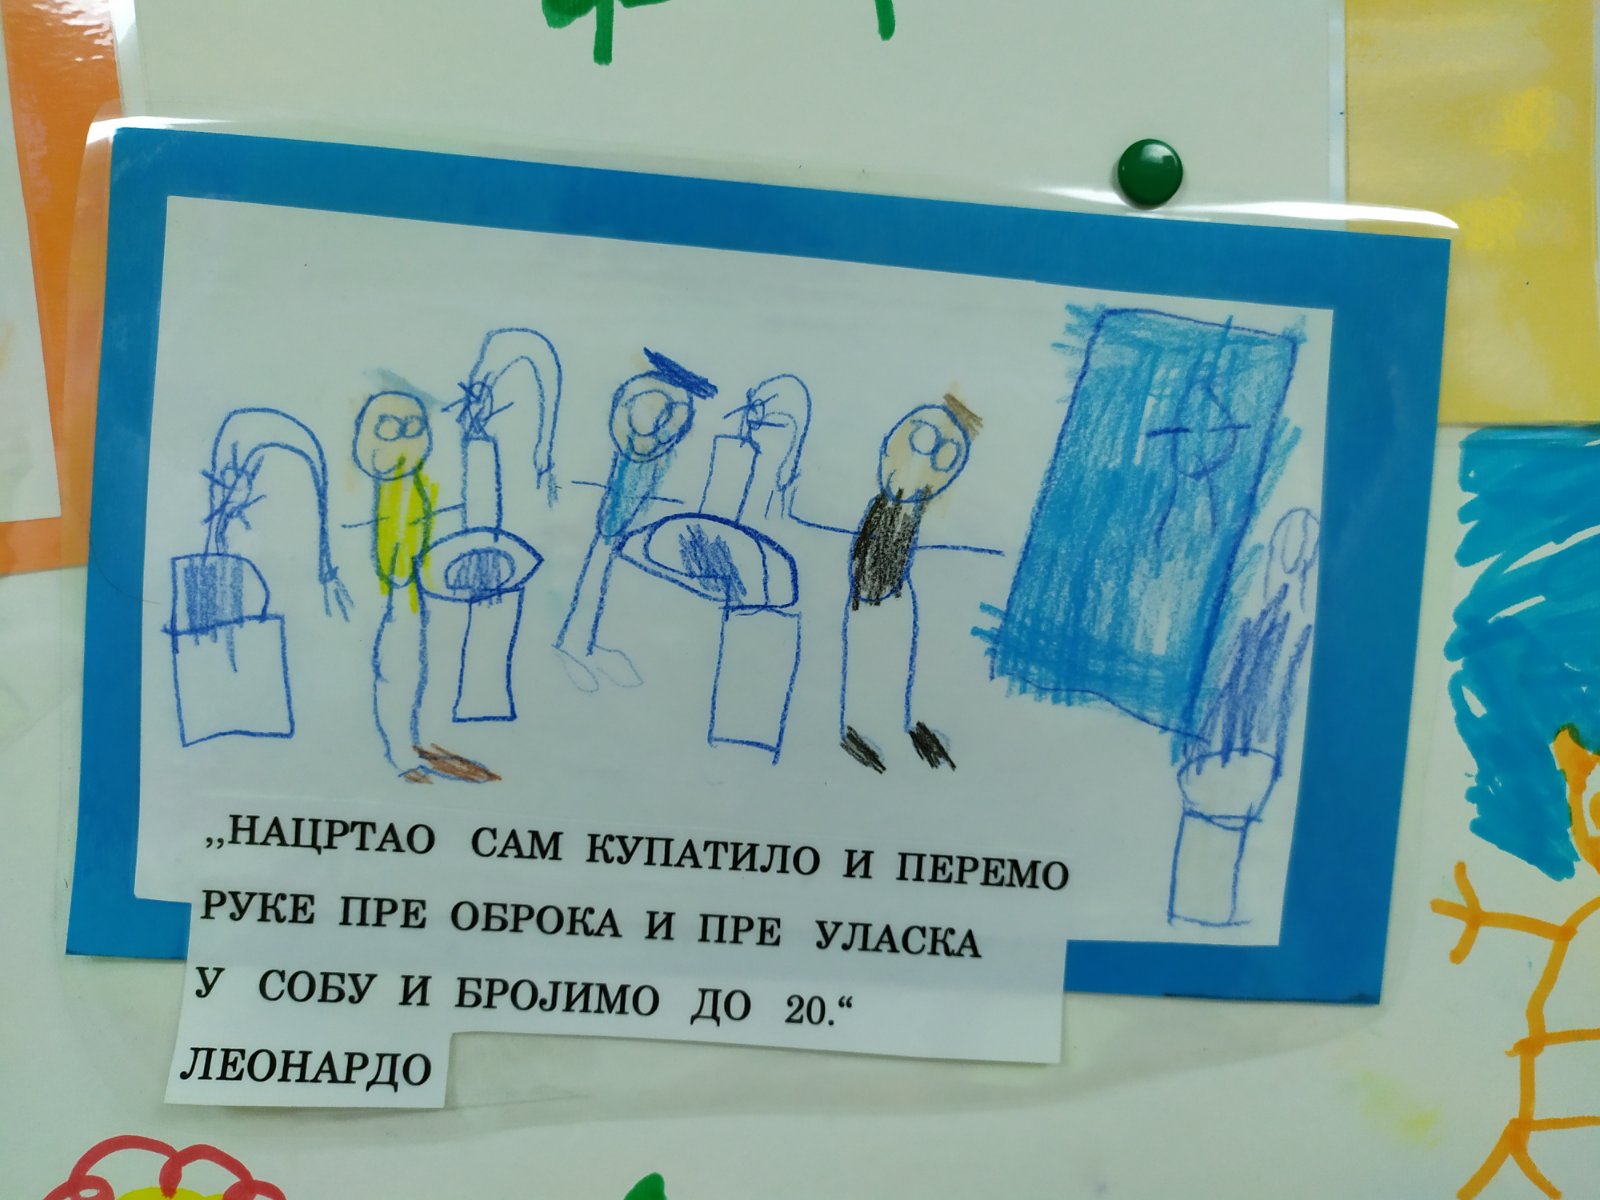 ,,НАЦРТАО САМ КУПАТИЛО И ПЕРЕМО
РУКЕ ПРЕ ОБРОКА И ПРЕ УЛАСКА
У СОБУ И БРОЈИМО ДО 20.“
ЛЕОНАРДО